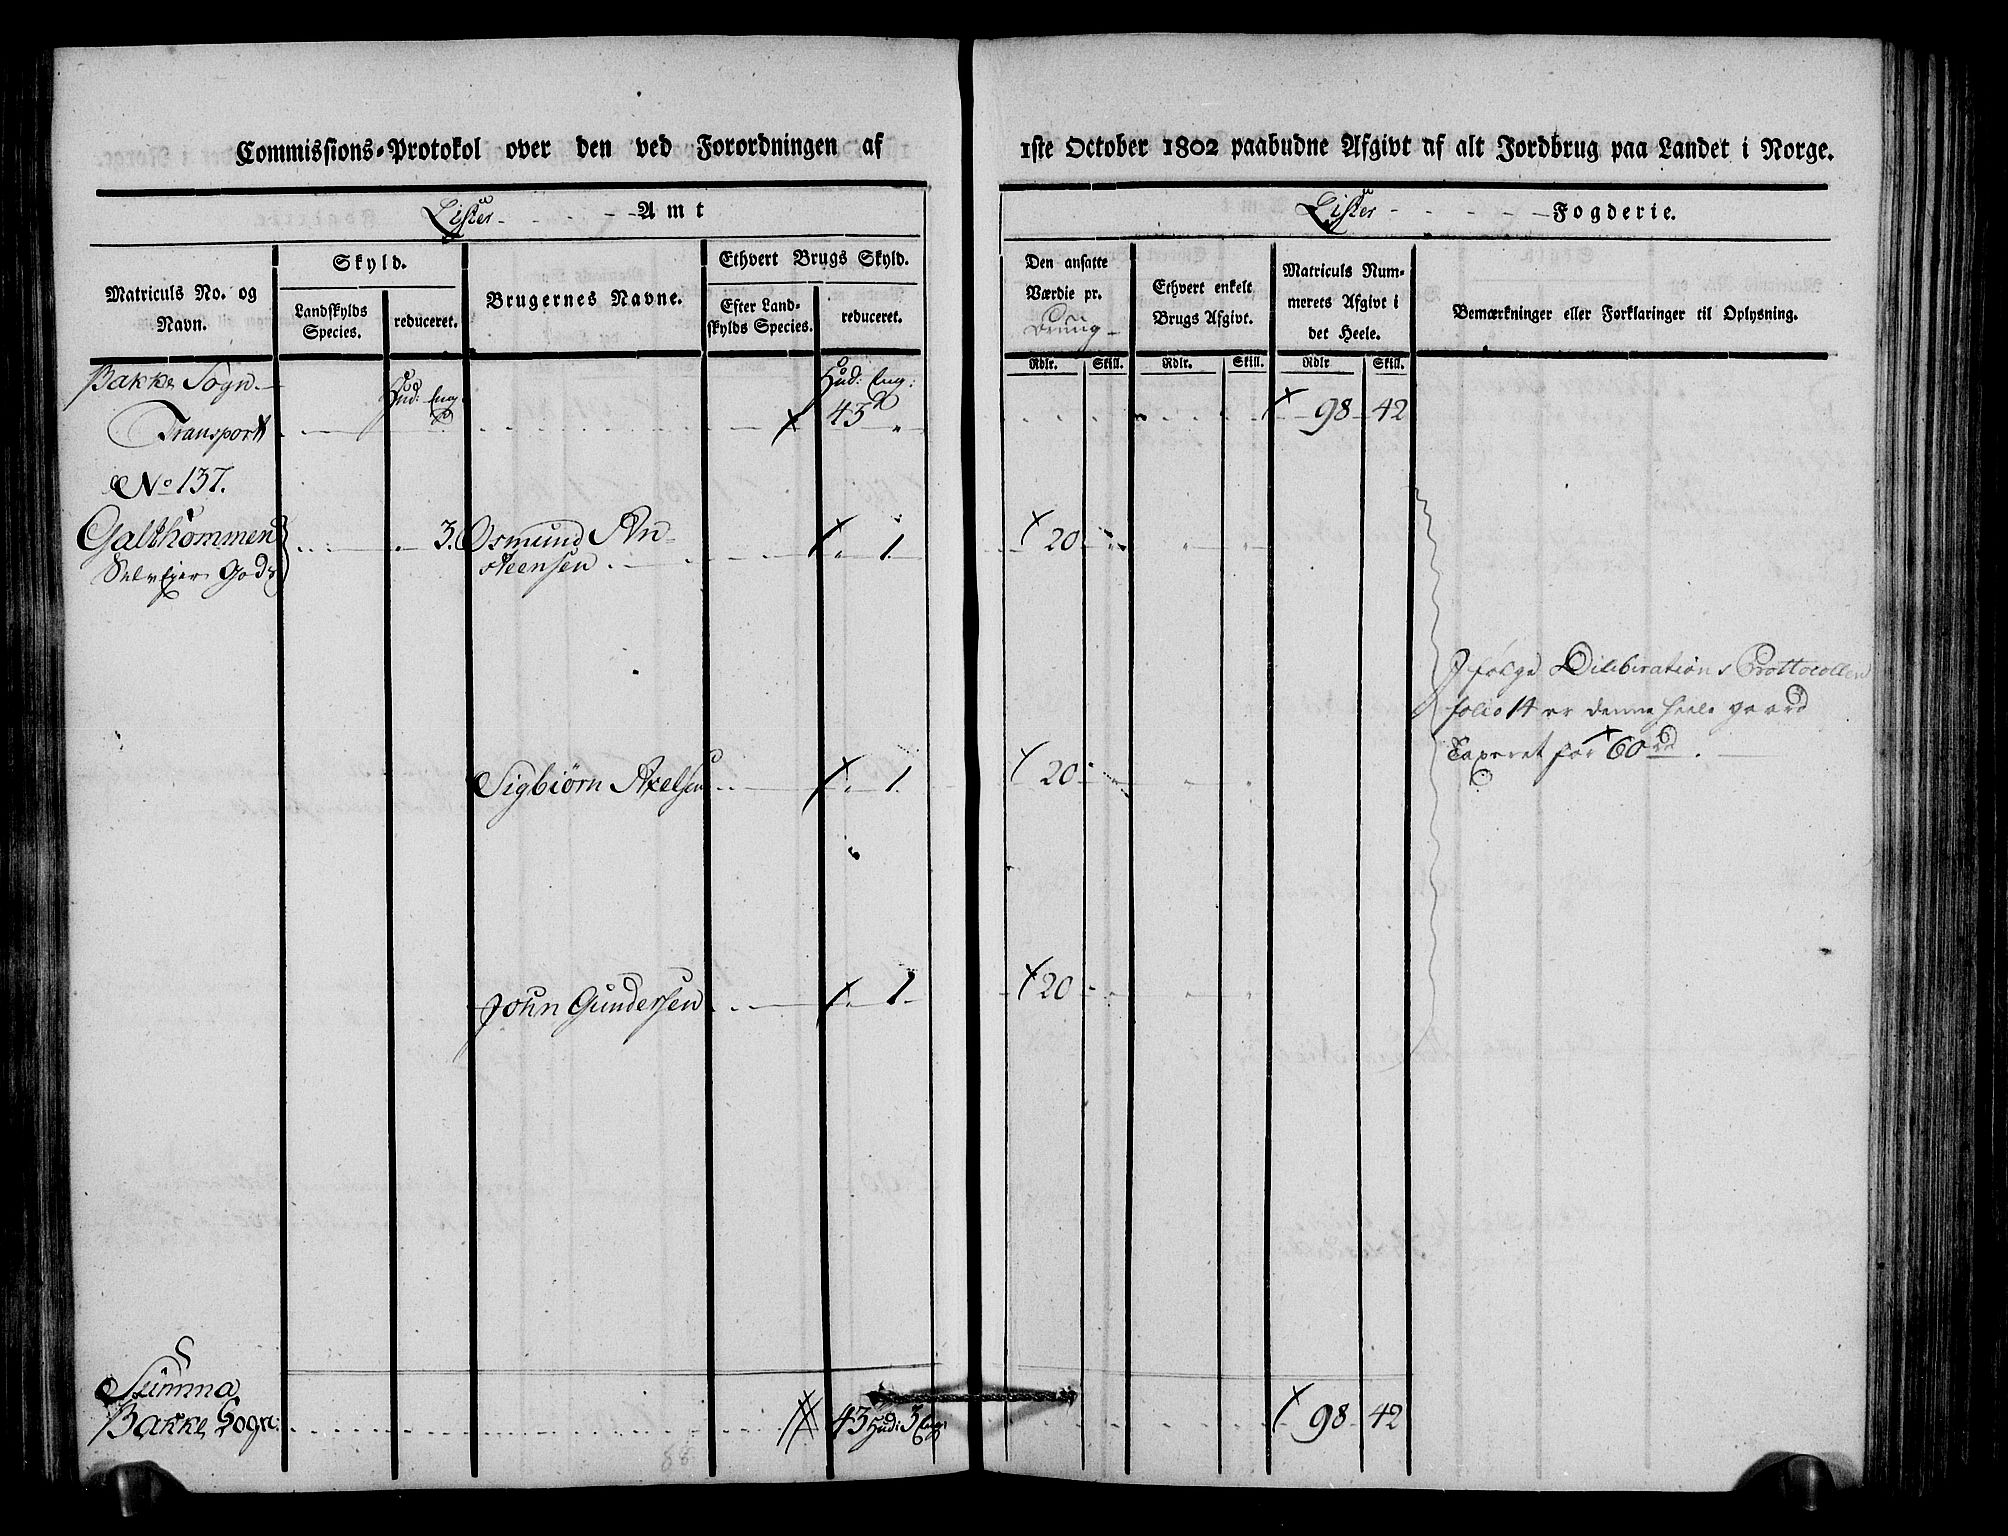 Commissions-Protokol over den ved Forordningen af
1ste October 1802 paabudne Afgivt af alt Jordbrug paa Landet i Norge.
Lister - - - - Amt
Lister - - - - - Fogderie.
Matriculs No. og
Navn.
Skyld.
Landskylds
Species.
reduceret.
Brugernes Navne.
Ethvert Brugs Skyld.
Efter Land-
skylds Species.
reduceret.
Den ansatte
Værdie pr.
Brüug
Rdlr. Skill.
Ethvert enkelt
Brugs Afgivt.
Rdlr. Skill.
Matriculs Num-
merets Afgivt i
det Heele.
Rdlr Skill.
Bemærkninger eller Forklaringer til Oplysning.
Bakke Sogn.
Hud: Eng:
Hud: Eng:
Transport 43 " 98 - 42
No 137.
Galthommen 3. Osmund An- 1. 20
Selveyer Gods steensen.
I følge Deliberations Prottocollen
folio 14 er denne heele gaard
Taxeret for 60 rd.
Sigbiørn Axelsen 1. 20
John Gundersen 1. 20
Summa
Bakke Sogn. 43 Hud: 3 Eng: 98 - 42